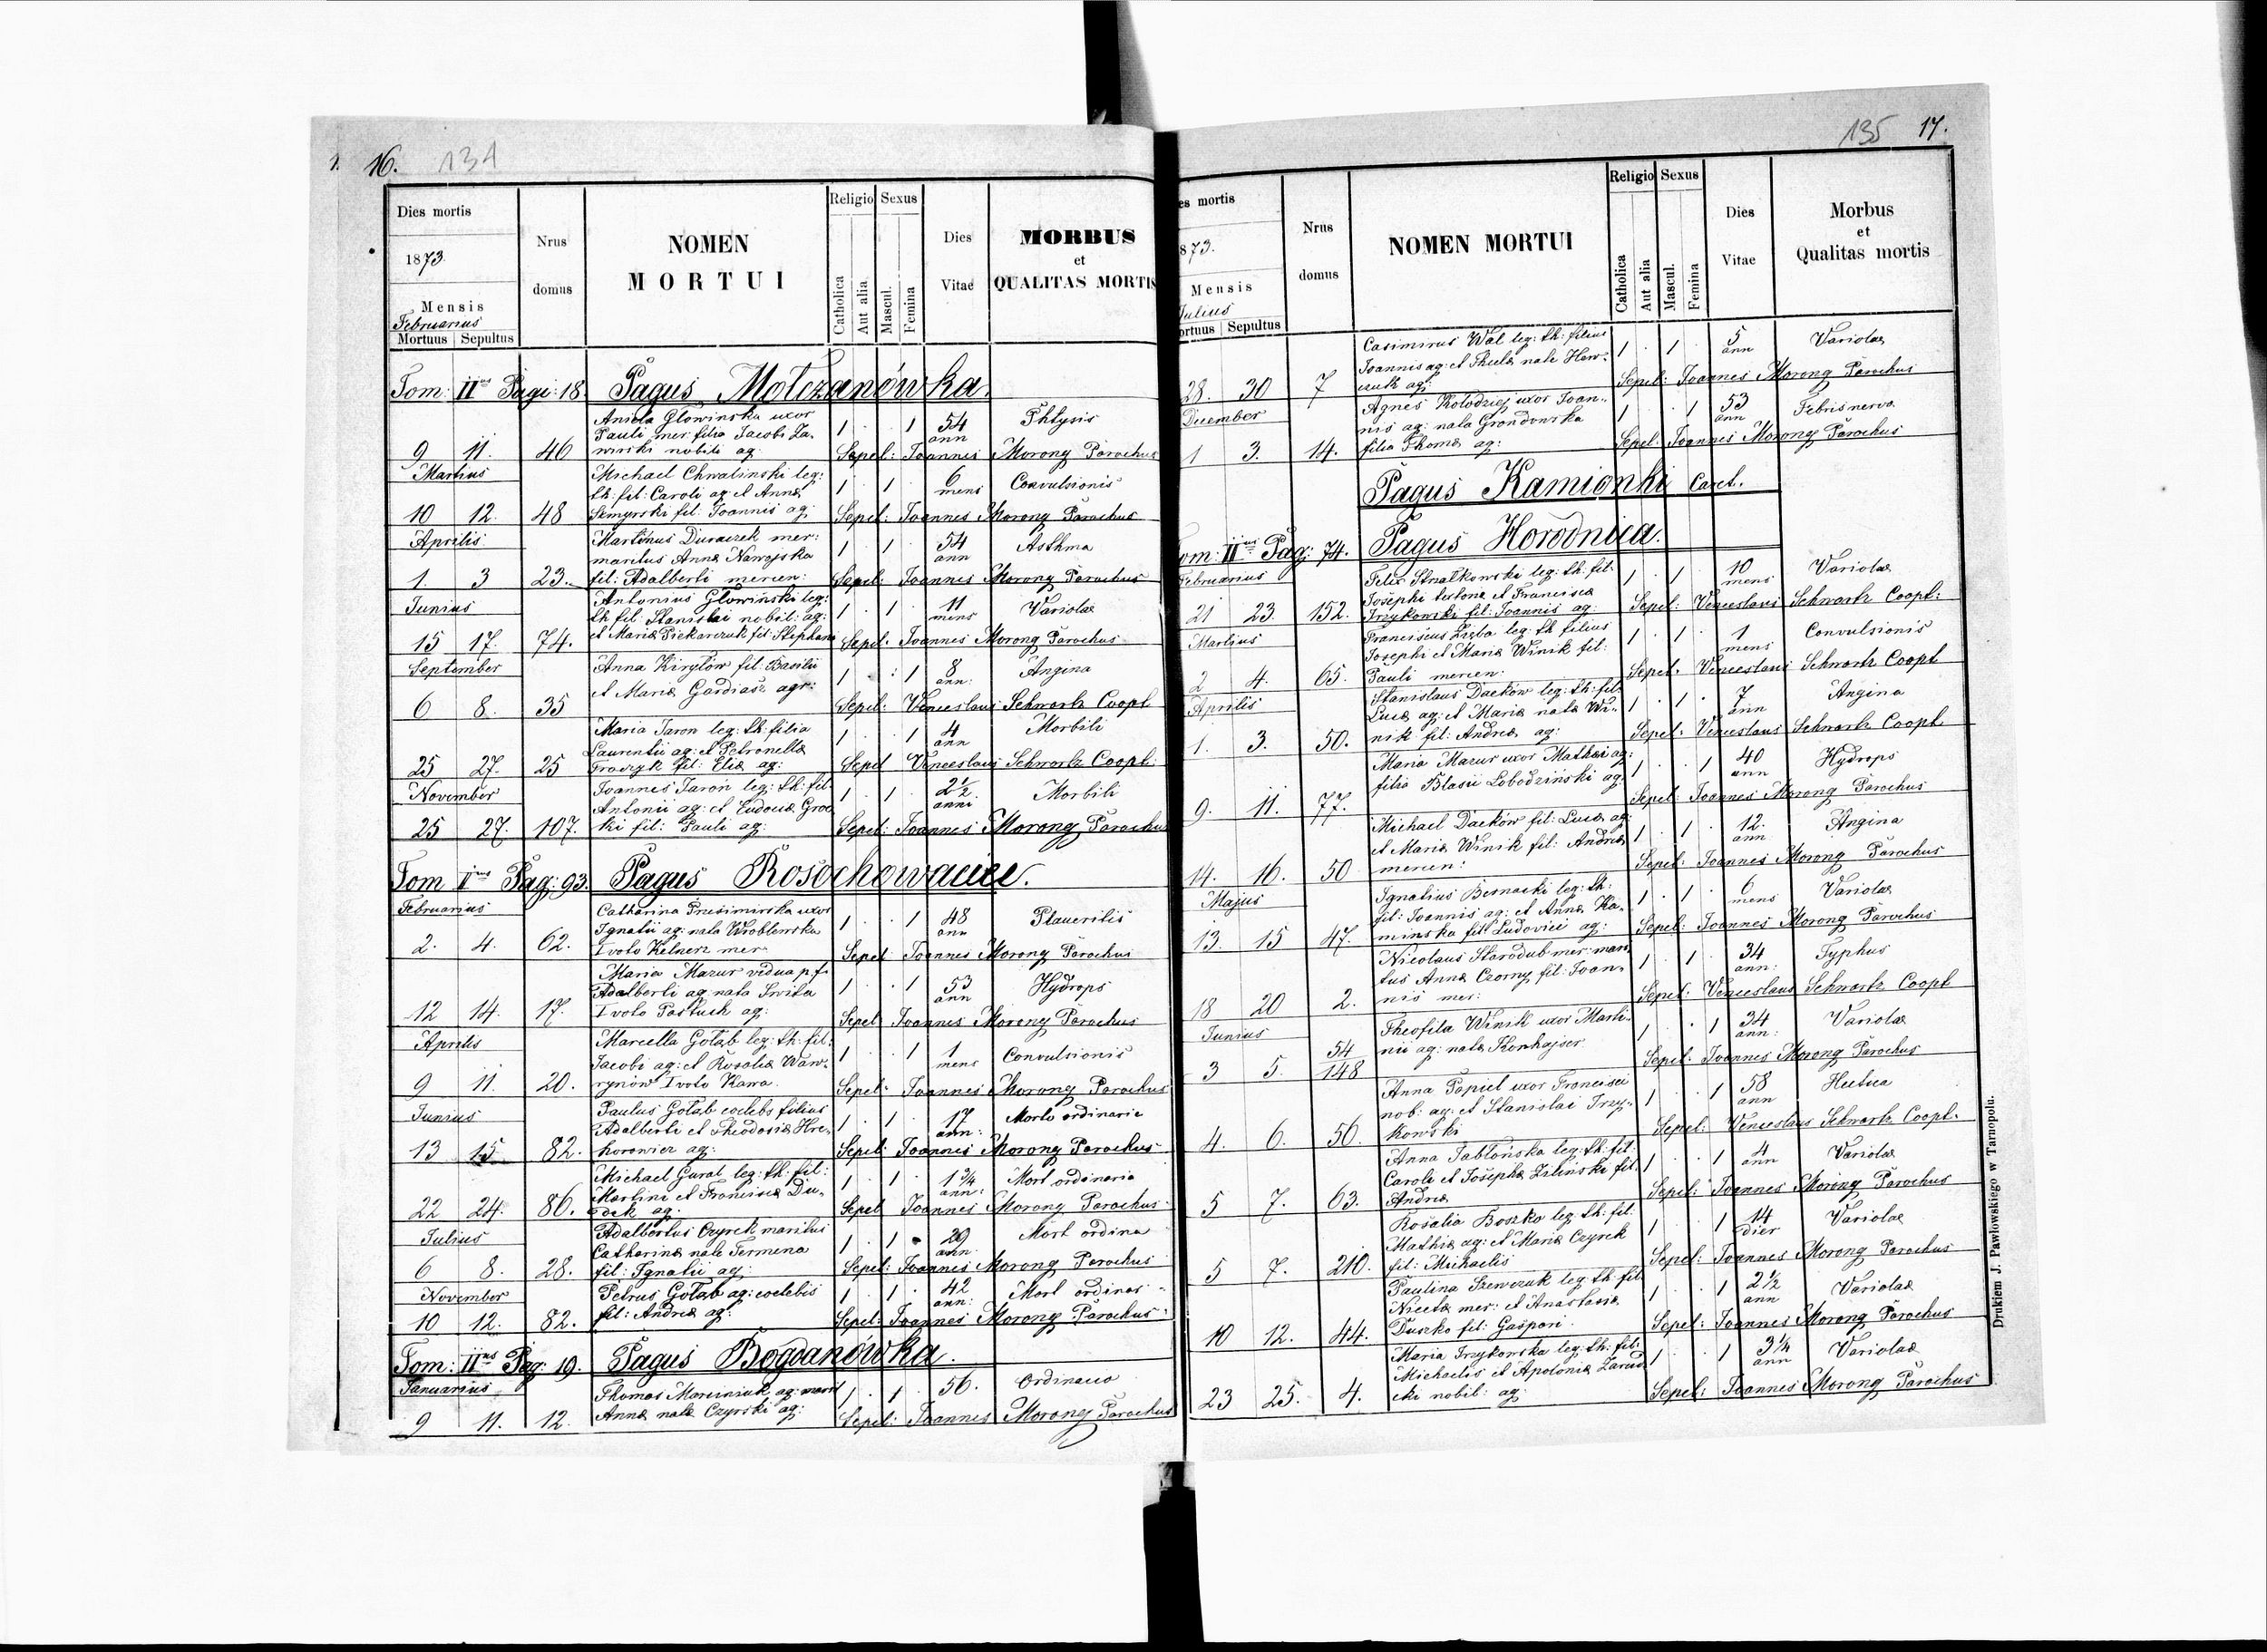 1. 16. 134
Dies mortis
1873.
Mensis
Februarius
Mortuus Sepultus
Nrus
domus
NOMEN
MORTUI
Religio
Catholica
Aut alia
Sexus
Mascul.
Femina
Dies
Vitae
MORBUS
et
QUALITAS MORTIS
Tom: II us Pagi: 18. Pagus Motczanówka.
Aniela Glowinska uxor
Pauli mer: filia Jacobi Za-
9 11. 46 wirski nobili ag: 1 1 54 ann Phtysis
Sepel: Joannes Morong Parochus
Martius
Michael Chwalinski leg:
th: fil: Caroli ag: et Anna
10 12. 48 Szmyrski fil: Joannis ag: 1 1 6 mens Convulsionis
Sepel: Joannes Morong Parochus
Aprilis
Martinus Duraczek mer:
maritus Anna Nawojska
1. 3 23. fil: Adalberti mercen: 1 1 54 ann Asthma
Sepel: Joannes Morong Parochus
Junius
Antonius Glowinski leg:
th fil: Stanislai nobil: ag:
15 17. 74. et Maria Piekarczuk fil: Stephani 1 1 11 mens Variola
Sepel: Joannes Morong Parochus
September
Anna Kirylów fil: Basilii
6 8. 35 et Maria Gardiasz agr: 1 1 8 ann: Angina
Sepel: Venceslaus Schwartz Coopt
Maria Jaron leg: th: filia
Laurentii ag: et Petronella
25 27. 25 Fraszyk fil: Elia ag: 1 1 4 ann Morbili
Sepel Venceslaus Schwartz Coopt
November
Joannes Jaron leg: th: fil:
Antonii ag: et Eudocia Groc
25 27. 107. ki fil: Pauli ag: 1 1 2 1/2 anni Morbili
Sepel: Joannes Morong Parochus
Tom I us Pag: 93. Pagus Rosochowaciec.
Februarius
Catharina Presimirska uxor
Ignatii ag: nata Wroblewska
2. 4. 62. I voto Kelnerz mer 1 1 48 ann Plaueritis
Sepel Joannes Morong Parochus
Maria Mazur vidua p. f.
Adalberti ag: nata Swita
12 14. 17. I voto Pastuch ag: 1 1 53 ann Hydrops
Sepel Joannes Morong Parochus
Aprilis
Marcella Gołąb leg: th: fil:
Jacobi ag: et Rosalia Waw-
9 11. 20. rynów I voto Kawa 1 1 1 mens Convulsionis
Sepel: Joannes Morong Parochus
Junius
Paulus Gołąb coelebs filius
Adalberti et Theodosia Hre-
13 15 82. horowicz ag: 1 1 17 ann: Morte ordinaria
Sepel: Joannes Morong Parochus
Michael Gural leg: th: fil:
Martini et Francisca Du-
22 24. 86. dek ag: 1 1 1 3/4 ann: Mort ordinaria
Sepel Joannes Morong Parochus
Julius
Adalbertus Czyrek maritus
Catharina nata Termena
6 8. 28. fil: Ignatii ag: 1 1 29 ann: Mort ordina
Sepel: Joannes Morong Parochus
November
Petrus Gołąb ag: coelebis
10 12. 82. fil: Andrea ag: 1 1 42 ann: Mort ordinar
Sepel: Joannes Morong Parochus
Tom: II us Pag: 19. Pagus Bogdanówka.
Januarius
Thomas Marciniuk ag: marit
9 11. 12. Anna nata Czyrski ag: 1 1 56. Ordinaria
Sepel: Joannes Morong Parochus
135 17.
es mortis
873.
Mensis
Julius
ortuus Sepultus
Nrus
domus
NOMEN MORTUI
Religio
Catholica
Aut alia
Sexus
Mascul.
Femina
Dies
Vitae
Morbus
et
Qualitas mortis
Casimirus Wal leg: th: filius
Joannis ag: et Thecla nata Haw-
28. 30 7 ag: 1 1 5 ann Variola
Sepel: Joannes Morong Parochus
December
Agnes Kołodziej uxor Joan-
nis ag: nata Grondowska
1 3. 14. filia Thoma ag: 1 1 53 ann Febris nervo
Sepel: Joannes Morong Parochus
Pagus Kamionki Caret.
om: II us Pag: 74. Pagus Horodnica.
Februarius
Felix Strzalkowski leg: th: fil:
Josephi et Francisca
21 23. 152. Trzykowski fil: Joannis ag: 1 1 10 mens Variola
Sepel: Venceslaus Schwartz Coopt:
Martius
Franciscus Zięba leg: th filius
Josephi et Maria Winik fil:
2 4. 65. Pauli mercen: 1 1 1 mens Convulsionis
Sepel. Venceslaus Schwartz Coopt
Aprilis
Stanislaus Daćków leg: th: fil:
Luca ag: et Maria nata Wi-
1. 3. 50. nik fil: Andrea ag: 1 1 7 ann Angina
Sepel. Venceslaus Schwartz Coopt
Maria Mazur uxor Mathai ag:
filia Blasii Lobodziński ag.
9. 11. 77. 1 1 40 ann Hydrops
Sepel: Joannes Morong Parochus
Michael Daćków fil: Luca ag:
et Maria Winik fil: Andrea
14. 16. 50 mercen: 1 1 12. ann Angina
Sepel: Joannes Morong Parochus
Majus
Ignatius Bernacki leg: th:
fil: Joannis ag: et Anna Ka-
13. 15 47. minska fil: Ludovici ag: 1 1 6 mens Variola
Sepel: Joannes Morong Parochus
Nicolaus Starodub mer: mari
tus Anna Czorny fil: Joan-
18 20 2. nis mer: 1 1 34 ann: Typhus
Sepel: Venceslaus Schwartz Coopt
Junius
Theofila Winik uxor Marti-
nii ag: nata Konhajser
3 5. 54/148 1 1 34 ann: Variola
Sepel: Joannes Morong Parochus
Anna Papiel uxor Francisci
nob: ag: et Stanislai Trzy-
4. 6. 56. kowski 1 1 58 ann Hectica
Sepel: Venceslaus Schwartz Coopt.
Anna Jabłońska leg: th: fil:
Caroli et Josepha Zieliński fil:
5 7. 63. Andrea 1 1 4 ann Variola
Sepel: Joannes Morong Parochus
Rosalia Boszko leg: th: fil.
Mathia ag: et Maria Czyrek
5 7. 210. fil: Michaelis 1 1 14 dier Variola
Sepel: Joannes Morong Parochus
Paulina Szewczuk leg. th. fil:
Niceta mer: et Anastasia
10 12. 44. Duszko fil: Gaspari 1 1 2 1/2 ann Variola
Sepel: Joannes Morong Parochus
Maria Trzykowska leg: th: fil:
Michaelis et Apolonia Zarud
23 25. 4. cki nobil: ag: 1 1 3 1/4 ann Variola
Sepel: Joannes Morong Parochus
Drukiem J. Pawłowskiego w Tarnopolu.